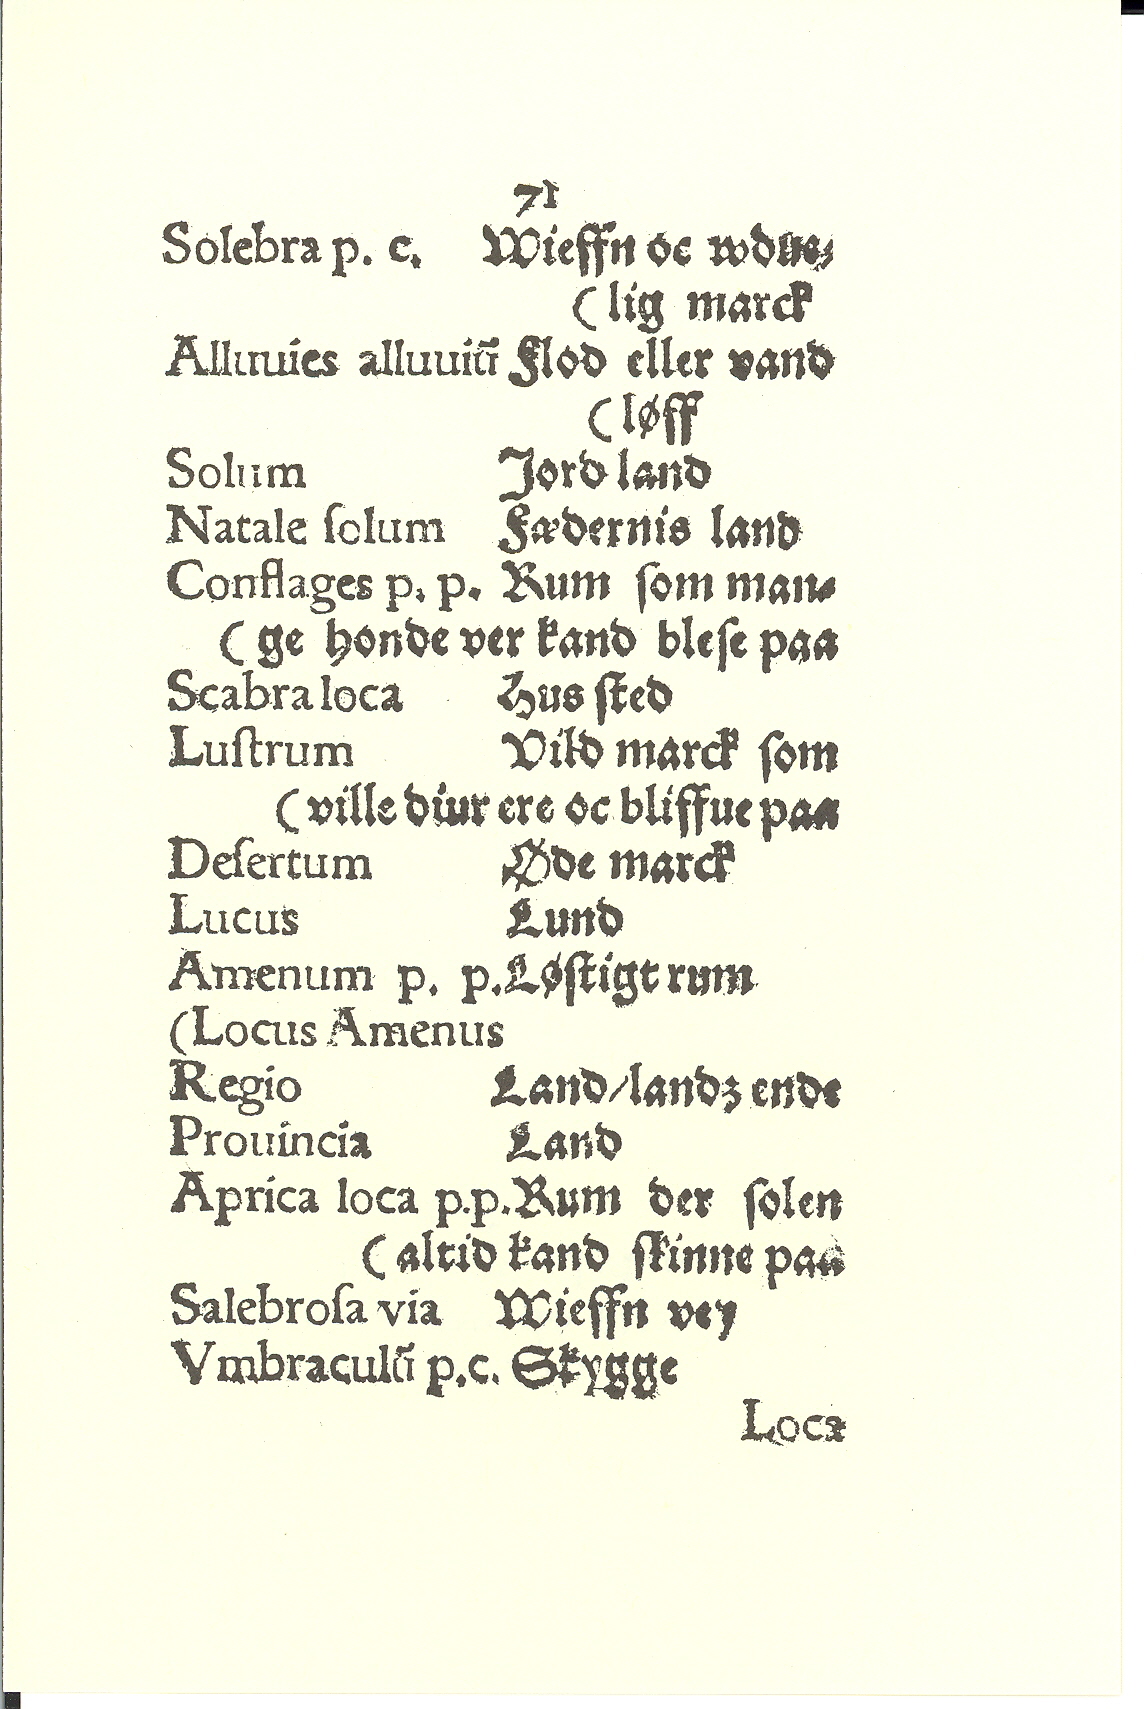 71
Solebra p. c. Wieffn oc wdue⸗
(lig marck
Alluuies alluuiū Flod eller vand
(løff
Solum Jord land
Natale ſolum Fædernis land
Conflages p. p. Rum ſom man⸗
(ge honde ver kand bleſe paa
Scabra loca Hus ſted
Luſtrum Vild marck ſom
(ville diur ere oc bliffue paa
Deſertum Øde marck
Lucus Lund
Amenum p. p. Løſtigt rum
(Locus Amenus
Regio Land/landz ende
Prouincia Land
Aprica loca p.p. Rum der ſolen
(altid kand ſkinne paa
Salebroſa via Wieffn vey
Vmbraculū p.c. Skygge
Loca